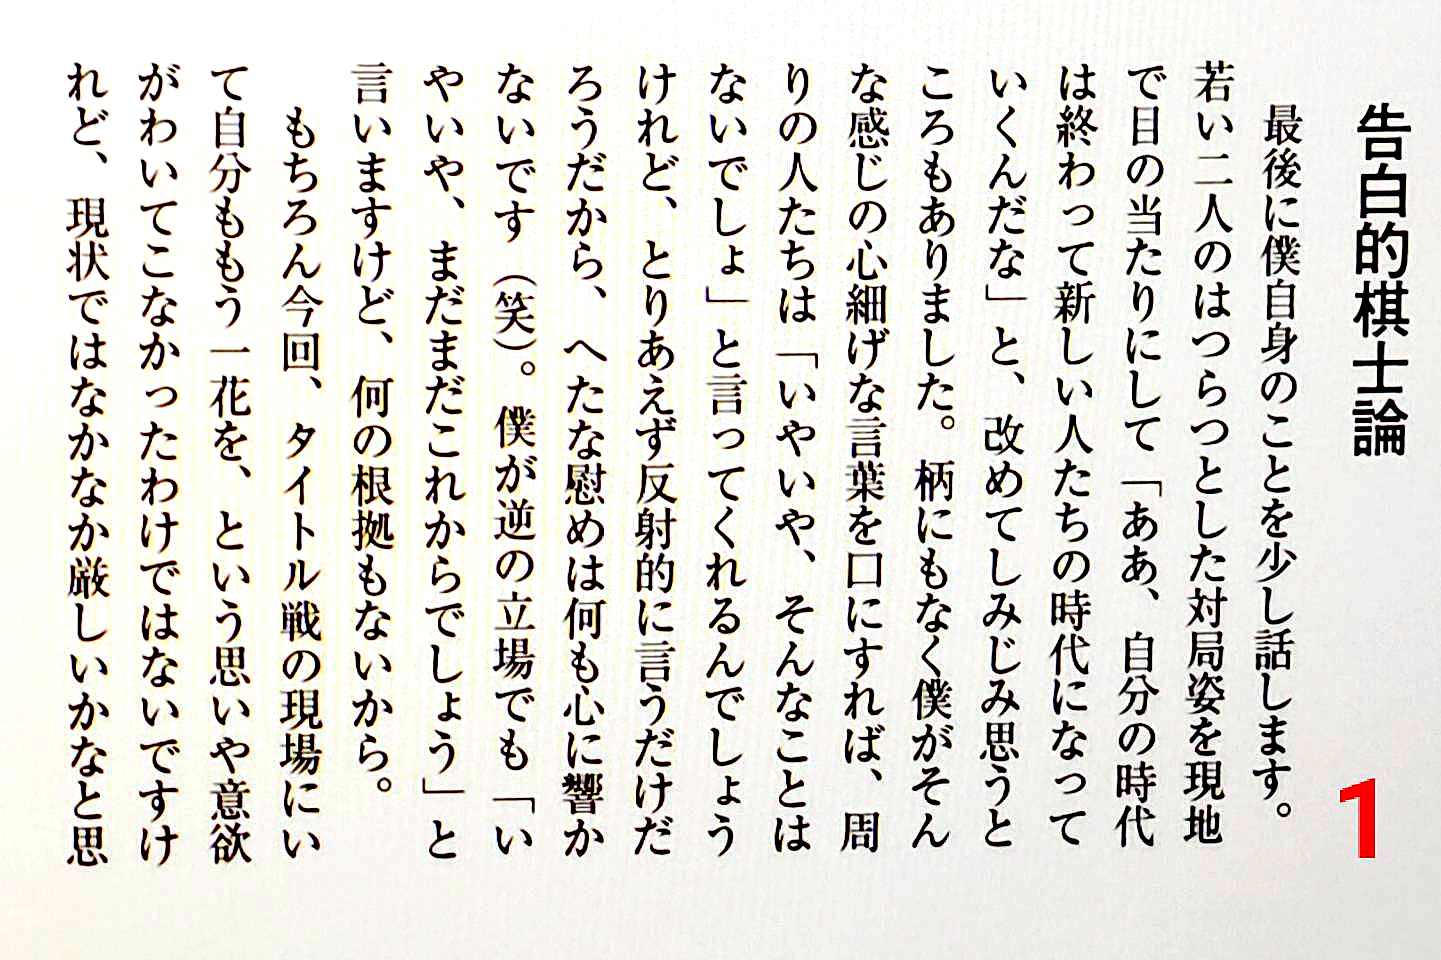 告白的棋士論
最後に僕自身のことを少し話します。
若い二人のはつらつとした対局姿を現地
で目の当たりにして「ああ、自分の時代
は終わって新しい人たちの時代になって
いくんだな」と、改めてしみじみ思うと
ころもありました。柄にもなく僕がそん
な感じの心細げな言葉を口にすれば、周
りの人たちは「いやいや、そんなことは
ないでしょ」と言ってくれるんでしょう
けれど、とりあえず反射的に言うだけだ
ろうだから、へたな慰めは何も心に響か
ないです（笑）。僕が逆の立場でも「い
やいや、まだまだこれからでしょう」と
言いますけど、何の根拠もないから。
もちろん今回、タイトル戦の現場にい
て自分ももう一花を、という思いや意欲
がわいてこなかったわけではないですけ
れど、現状ではなかなか厳しいかなと思
1